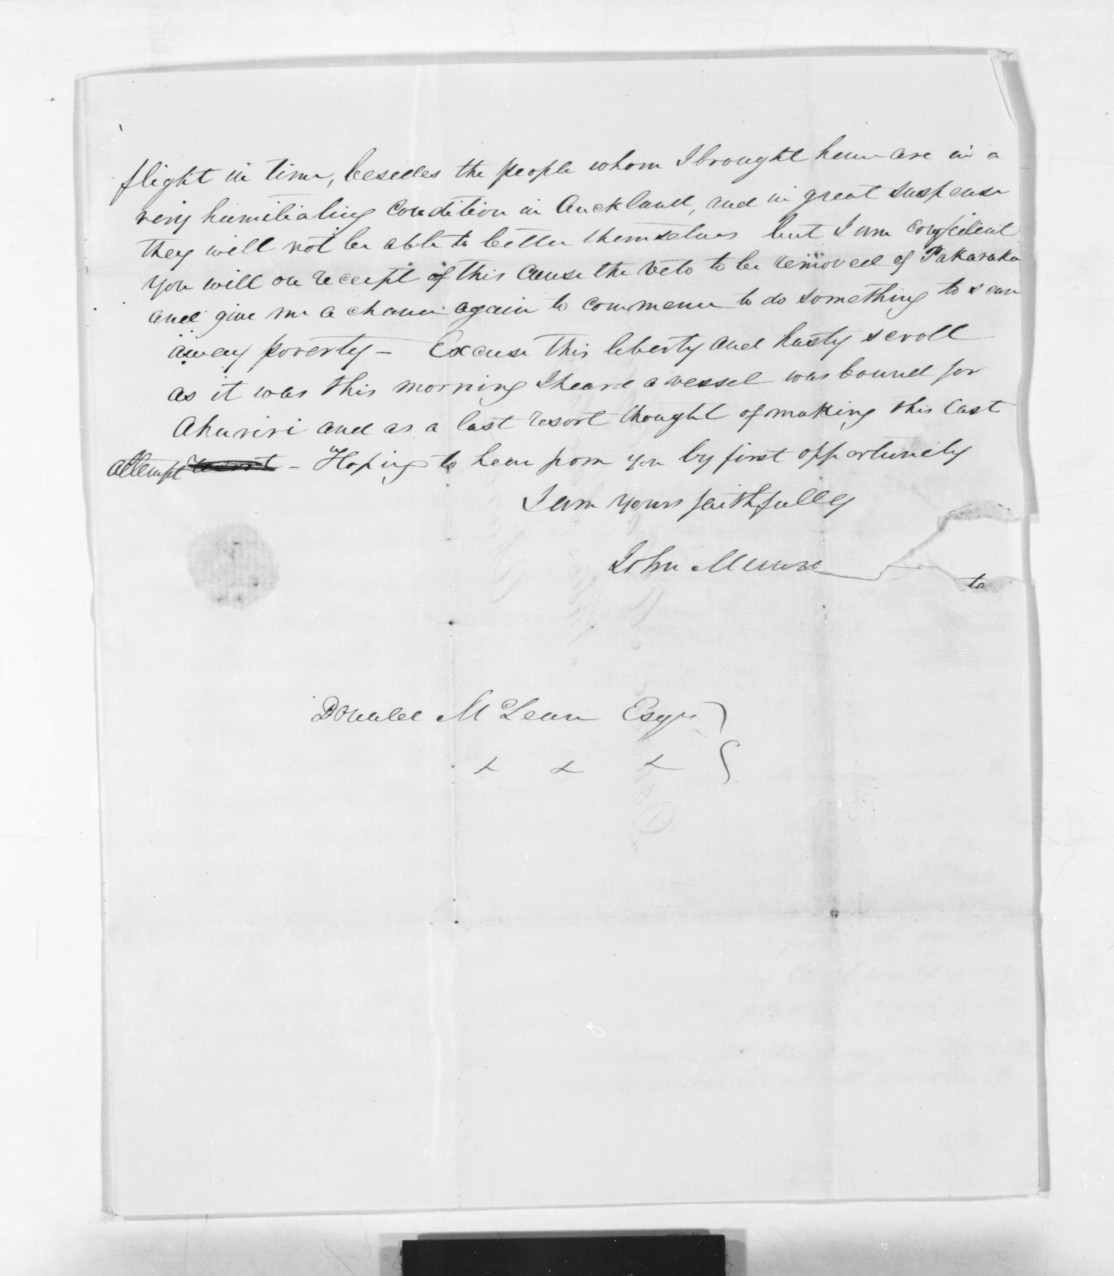 flight in time, besides the people whom I brought here are in a
very humiliating condition in Auckland, and in great suspense
they will not be able to better themselves but I am confident
you will on receipt of this cause the veto to be removed of Pakaraka
and give me a chance again to commence to do something to scare
away poverty - Excuse this liberty and hasty scroll
as it was this morning I heard a vessel was bound for
Ahuriri and as a last resort thought of making this last
attempt - Hoping to hear from you by first opportunity
I am Yours faithfully
John Munro
to
Donald McLean Esqr